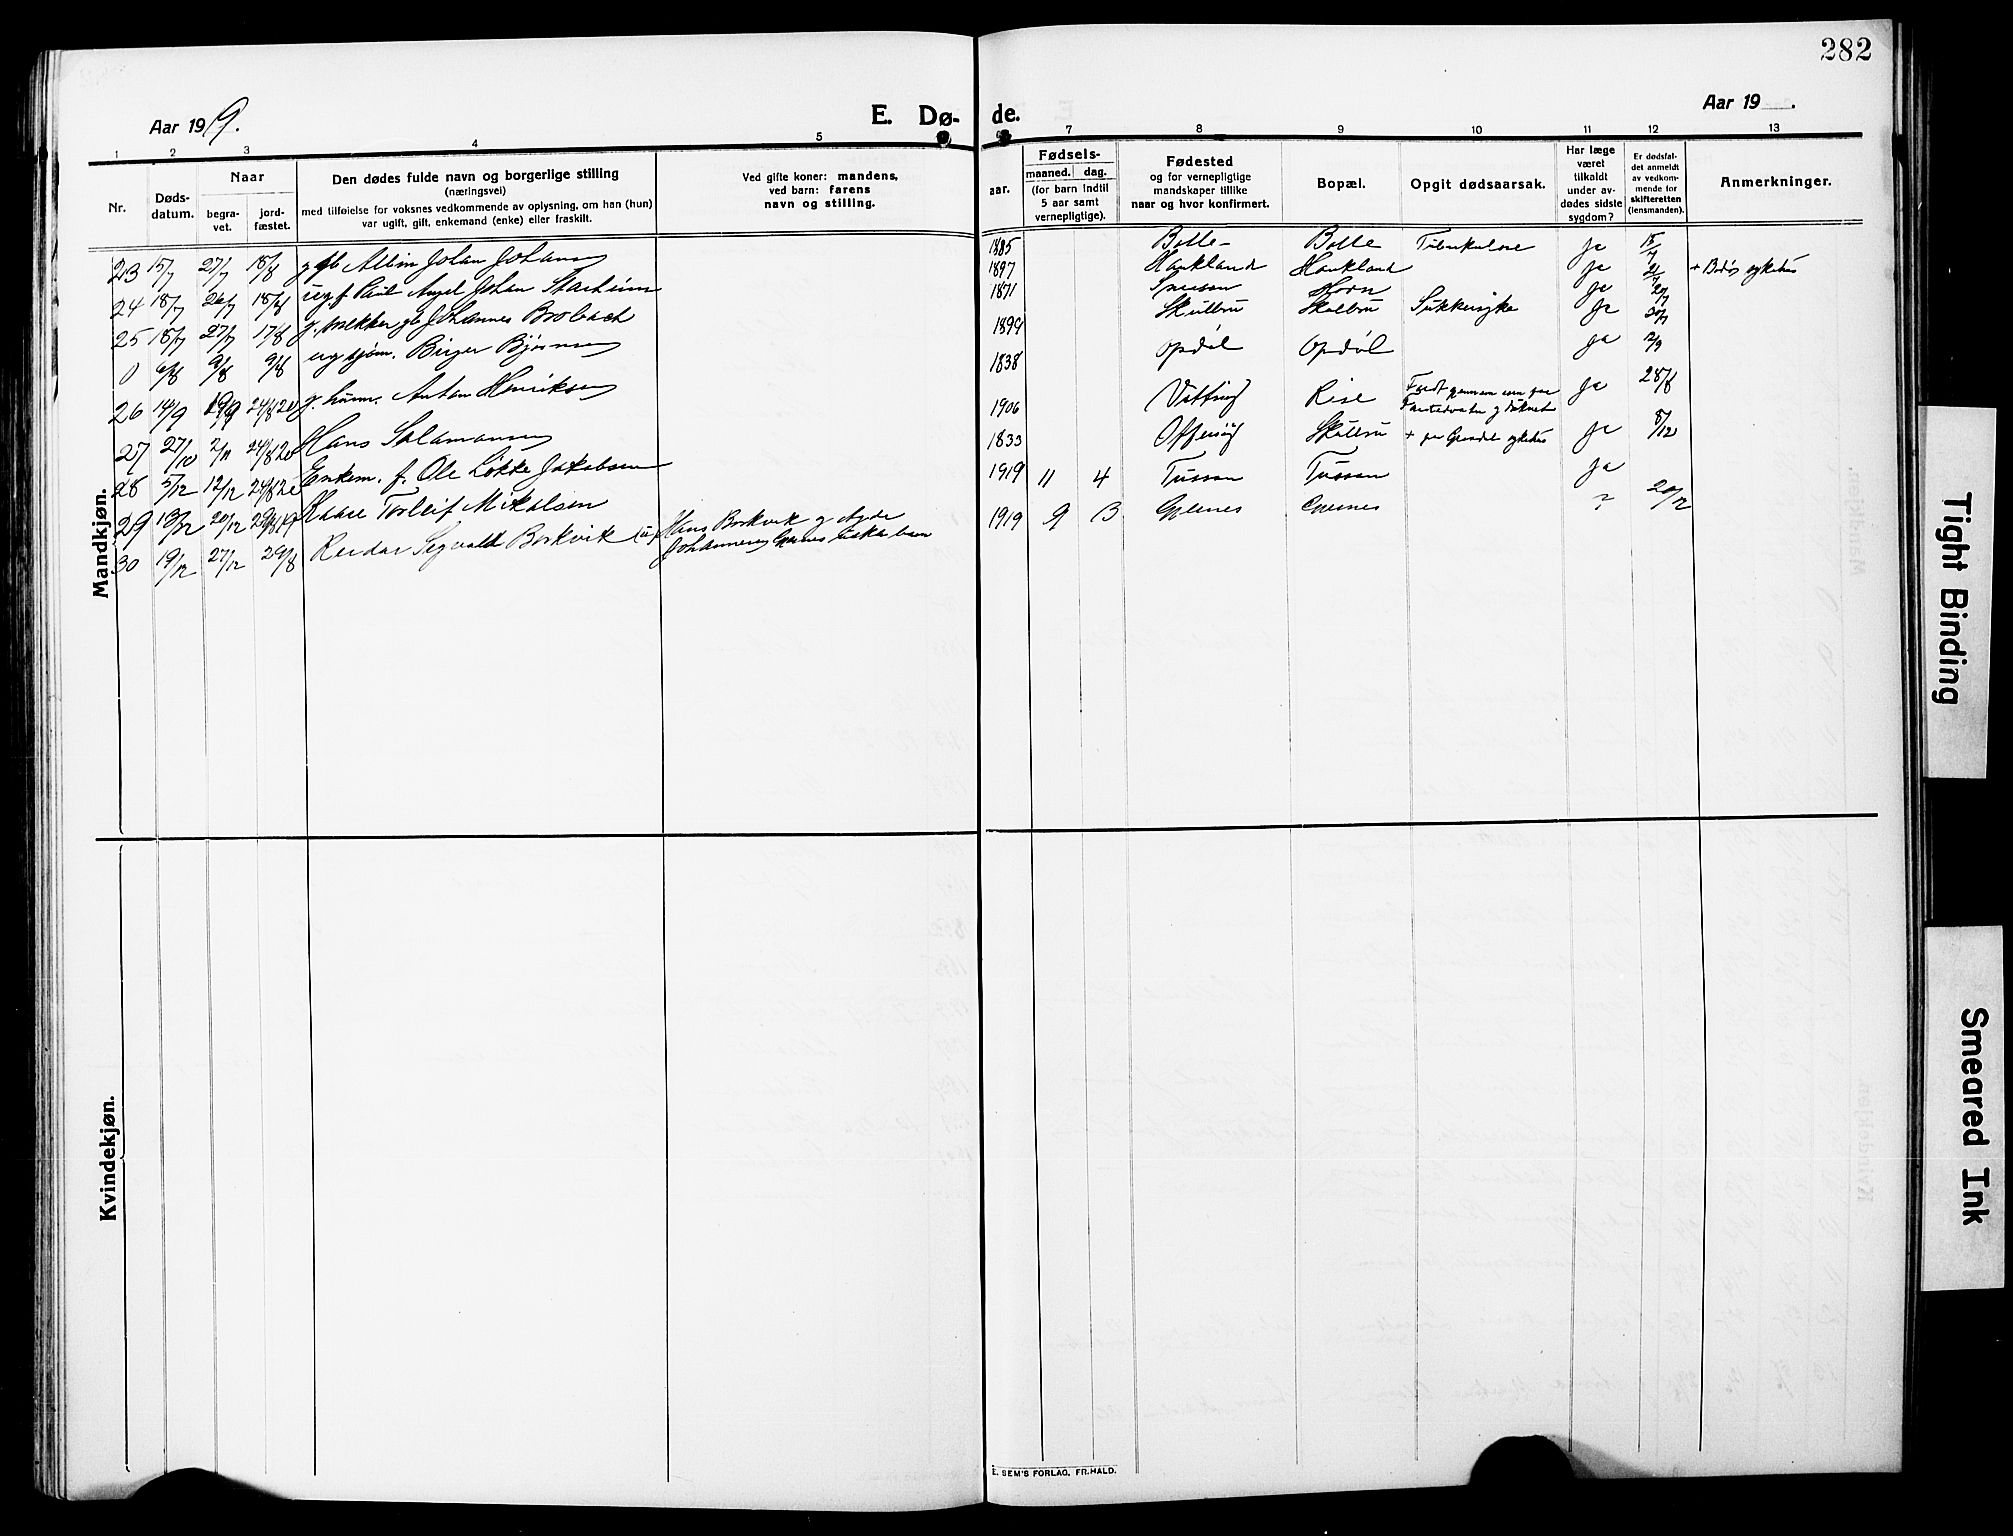 282
Aar 1919.
E. Dø-
de.
Aar 19 .
1 2 3 4 5
7 8 9 10 11 12 13
Nr.
Døds-
datum.
Naar
begra-
vet.
jord-
fæstet.
Den dødes fulde navn og borgerlige stilling
(næringsvei)
med tilføielse for voksnes vedkommende av oplysning, om han (hun)
var ugift, gift, enkemand (enke) eller fraskilt.
Ved gifte koner: mandens,
ved barn: farens
navn og stilling.
aar.
Fødsels-
maaned. dag.
(for barn indtil
5 aar samt
vernepligtige).
Fødested
og for vernepligtige
mandskaper tillike
naar og hvor konfirmert.
Bopæl.
Opgit dødsaarsak.
Har læge
været
tilkaldt
under av-
dødes sidste
sygdom?
Er dødsfal-
det anmeldt
av vedkom-
mende for
skifteretten
(lensmanden).
Anmerkninger.
Mandkjøn.
23 15/7 27/7 18/8 Albin Johan Johansen 1885 Bolle Bolle Tuberkulose ja 15/7
24 18/7 26/7 18/8 ugf Paul Angel Johan Starheim 1897 Haukland Haukland ja 21/7 + Bodø sykehus
25 18/7 27/7 17/8 g. Johannes Brobach 1871 Horn ja 20/7
0 6/8 9/8 9/8 ug sjøm. Birger Bjørnsen 1899 Skulbru Skulbru Sukkersyke ja 30/7
26 14/9 19/9 24/8 20 g. husm. Anton Henriksen 1838 Opdøl Opdøl ja 2/9
27 27/10 2/11 24/8 20 Hans Salamonsen 1906 Rise ja 28/8
28 5/12 12/12 24/8 20 Enkem. f. Ole Løkke Jakobsen 1833 Offersøy Skulbru + paa Gravdal sykehus ja 8/12
29 13/12 20/12 Kaare Torleif Mikalsen 1919 11 4 Tussen Tussen ja
30 19/12 27/12 29/8 Reidar Segvald Borkvik (u) Hans Borkvik g
Johannesen Gjernes uekte barn 1919 9 13 Gjernes Gjernes ? 20/12
Kvindekjøn.
E. SEM'S FORLAG, FR.HALD.
Tight Binding
Smeared Ink